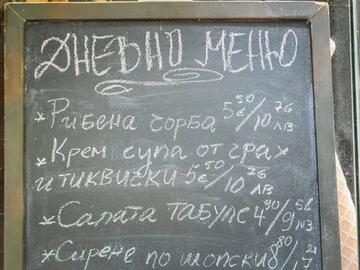 ДНЕВНО МЕНЮ
* Рибена чорба 5⁵⁰€/10⁷⁶ лв
* Крем супа от грах
и тиквички 5⁵⁰€/10⁷⁶ лв
* Салата табуле 4⁹⁰/9⁵⁸ лв
* Сирене по шопски 8⁸⁰/17²¹